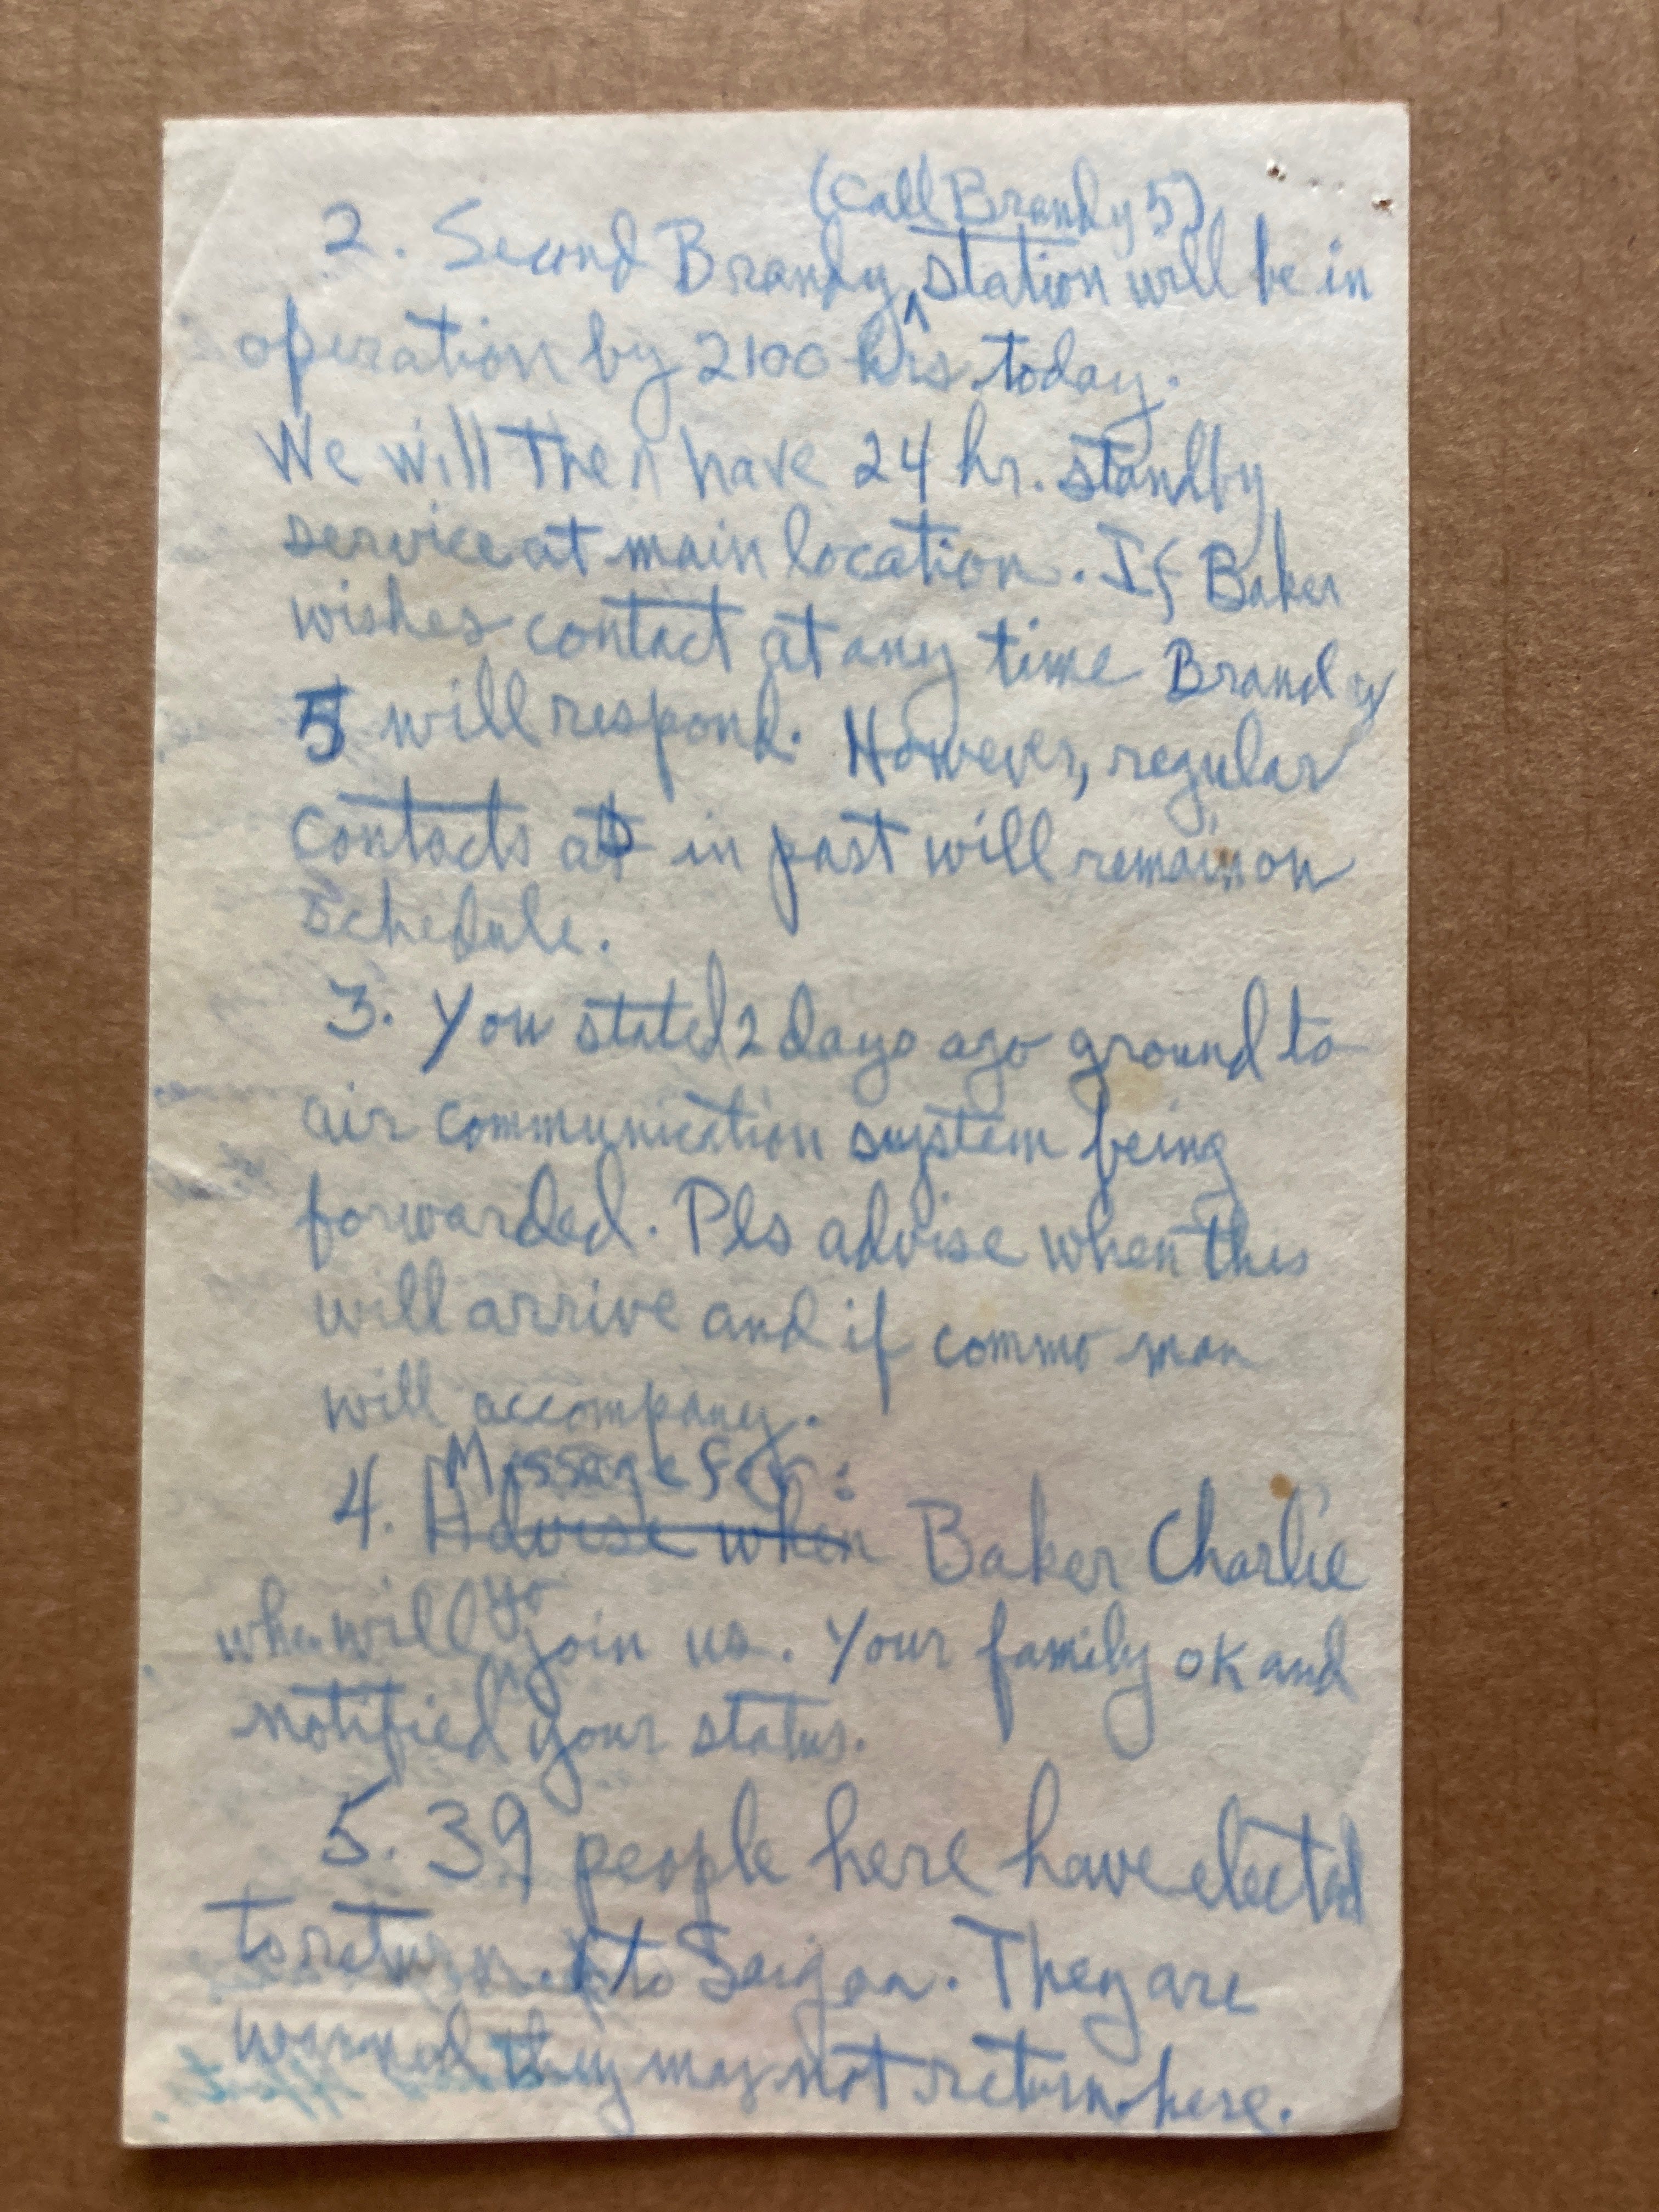 (Call Brandy 5)
2. Second Brandy ^ station will be in
operation by 2100 hrs. today.
We will then have 24 hr. standby
service at main location. If Baker
wishes contact at any time Brandy
5 will respond. However, regular
contacts as in past will remain on
schedule.
3. You stated 2 days ago ground to
air communication system being
forwarded. Pls advise when this
will arrive and if commo man
will accompany.
Message for:
4. Advise when Baker Charlie
yo
who will join us. Your family ok and
notified your status.
5. 39 people here have elected
to return to Saigon. They are
warned they may not return here.